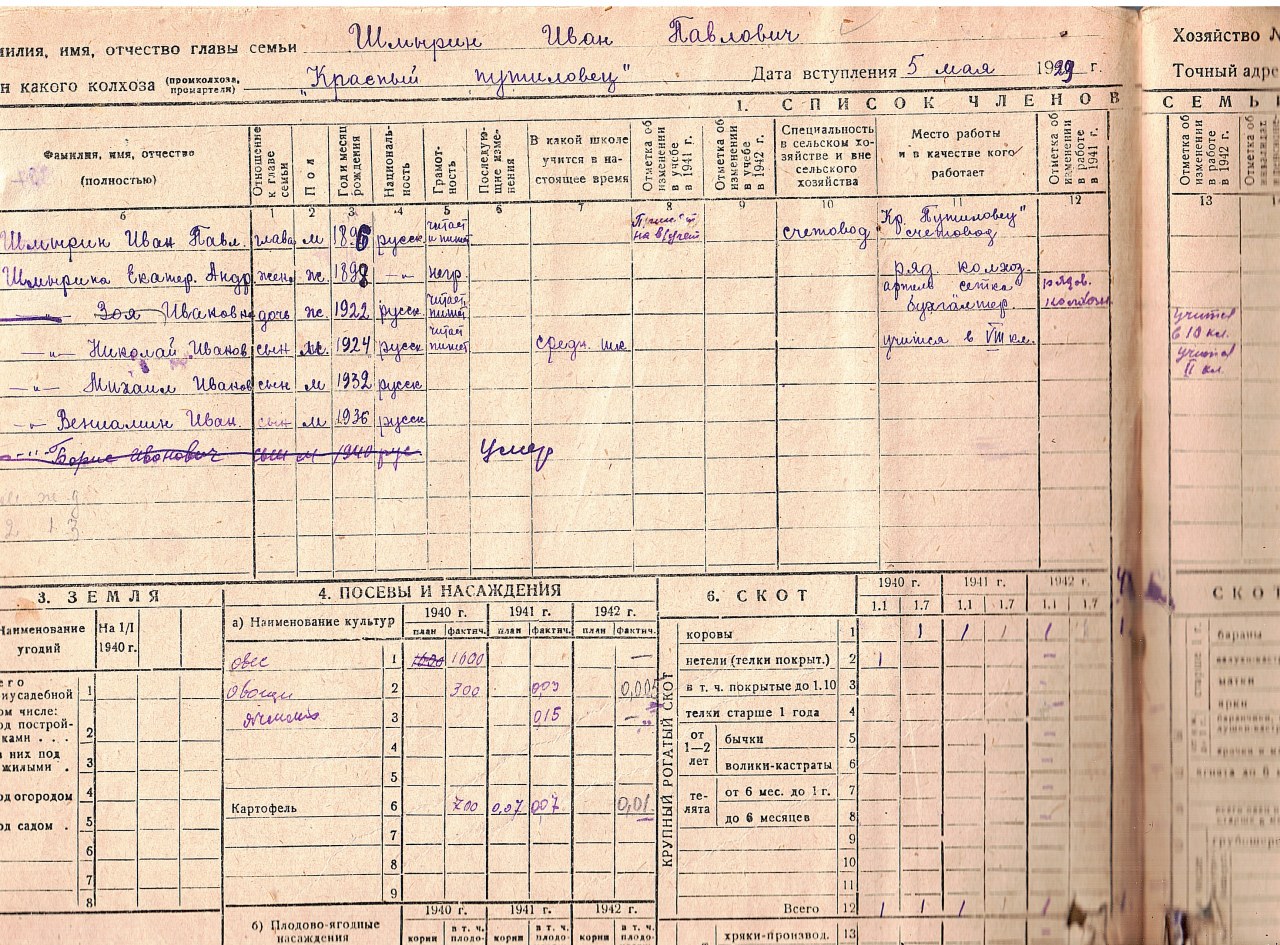 милия, имя, отчество главы семьи Шмырин Иван Павлович
н какого колхоза (промколхоза, промартели) „Красный путиловец" Дата вступления 5 мая 1929 г.
Хозяйство №
Точный адре
1. СПИСОК ЧЛЕНОВ СЕМЬИ
Фамилия, имя, отчество (полностью)
Отношение к главе семьи
Пол
Год и месяц рождения
Националь-ность
Грамот-ность
Последую-щие изме-нения
В какой школе учится в на-стоящее время
Отметка об изменении в учебе в 1941 г.
Отметка об изменении в учебе в 1942 г.
Специальность в сельском хо-зяйстве и вне сельского хозяйства
Место работы и в качестве кого работает
Отметка об изменении в работе в 1941 г.
Отметка об изменении в работе в 1942 г.
б 1 2 3 4 5 6 7 8 9 10 11 12 13
Шмырин Иван Павл. глава м 1896 русск читает и пишет счетовод Кр. Путиловец" счетовод
Шмырина Екатер. Андр жена ж. 1898 –"– негр. ряд. колхоз.
Зоя Ивановна дочь ж. 1922 русск. читает пишет артель сетка бухгалтер. рядов. колхозн
–"– Николай Иванов сын м. 1924 русск читает пишет средн. шк учится в VIII кл. учится в 10 кл.
–"– Михаил Иванов сын м 1932 русск учится II кл.
–"– Вениамин Иван. сын м 1936 русск
–"– Борис Иванович сын м 1940 рус Умер
3. ЗЕМЛЯ
Наименование угодий
На 1/I 1940 г.
его
иусадебной 1
ом числе:
од построй-
ками . . . 2
них под
жилыми . 3
од огородом 4
од садом . 5
6
7
8
4. ПОСЕВЫ И НАСАЖДЕНИЯ
а) Наименование культур
1940 г. 1941 г. 1942 г.
план фактич. план фактич. план фактич.
овес 1 1600 1600 —
Овощи 2 300 003 0,005
ячмень 3 015 —
4
5
Картофель 6 700 0,07 007 0,01
7
8
9
б) Плодово-ягодные насаждения
1940 г. 1941 г. 1942 г.
корни в т. ч. плодо- корни в т. ч. плодо- корни в т. ч. плодо-
6. СКОТ
1940 г. 1941 г. 1942 г.
1.1 1.7 1.1 1.7 1.1 1.7
КРУПНЫЙ РОГАТЫЙ СКОТ
коровы 1 1 1 1 1
нетели (телки покрыт.) 2 1
в т. ч. покрытые до 1.10 3
телки старше 1 года 4
от 1—2 лет
бычки 5
волики-кастраты 6
те-лята
от 6 мес. до 1 г. 7
до 6 месяцев 8
9
10
11
Всего 12 1 1 1 1 1
хряки-производ. 13
СКОТ
бараны
матки
ярки